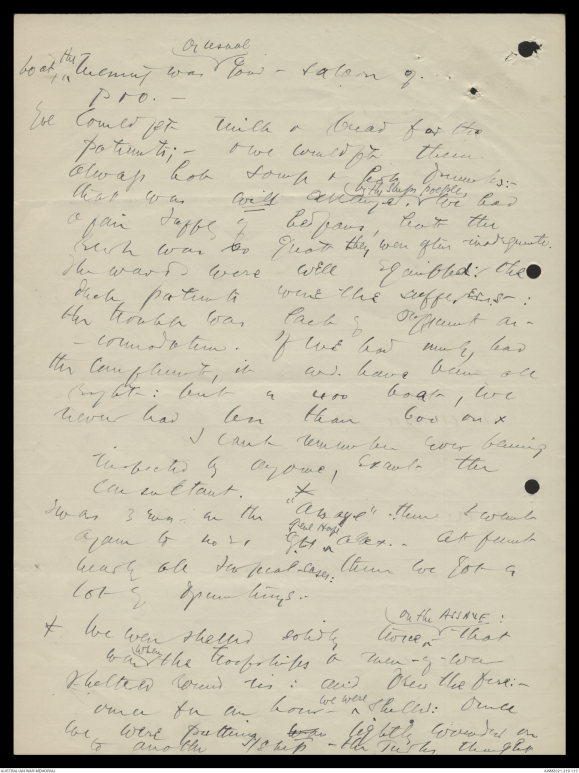 on usual
boat the Tueny was low - saloon of
pro. -
We could get milk & bread for the
patients; - & we could get them
always hot soup & hot drinks:-
by the ships people,
that was well arranged. We had
a fair supply of bedpans, but the
rush was so great they were often inadequate.
The wards were well equipped: the
deck patients were the sufferers:
the trouble was lack of sufficient ac-
-commodation. If we had only had
the complement, it wd. have been all
right: but a 400 boat, we
never had less than 600 on x
I cant remember ever being
inspected by anyone, except the
consultant. x
I was 3 mos. on the "Assaye" then I went
again to no 21 Genl Hosp Alex. - At first
nearly all surgical cases: then we got a
lot of
on the ASSAYE:
x We were shelled solidly twice - that
was when the troopships & men-of-war
sheltered round us: and drew the fire:-
once for an hour we were shelled: Once
we were putting lightly wounded on
to another ship - the Turks thought
AUSTRALIAN WAR MEMORIAL